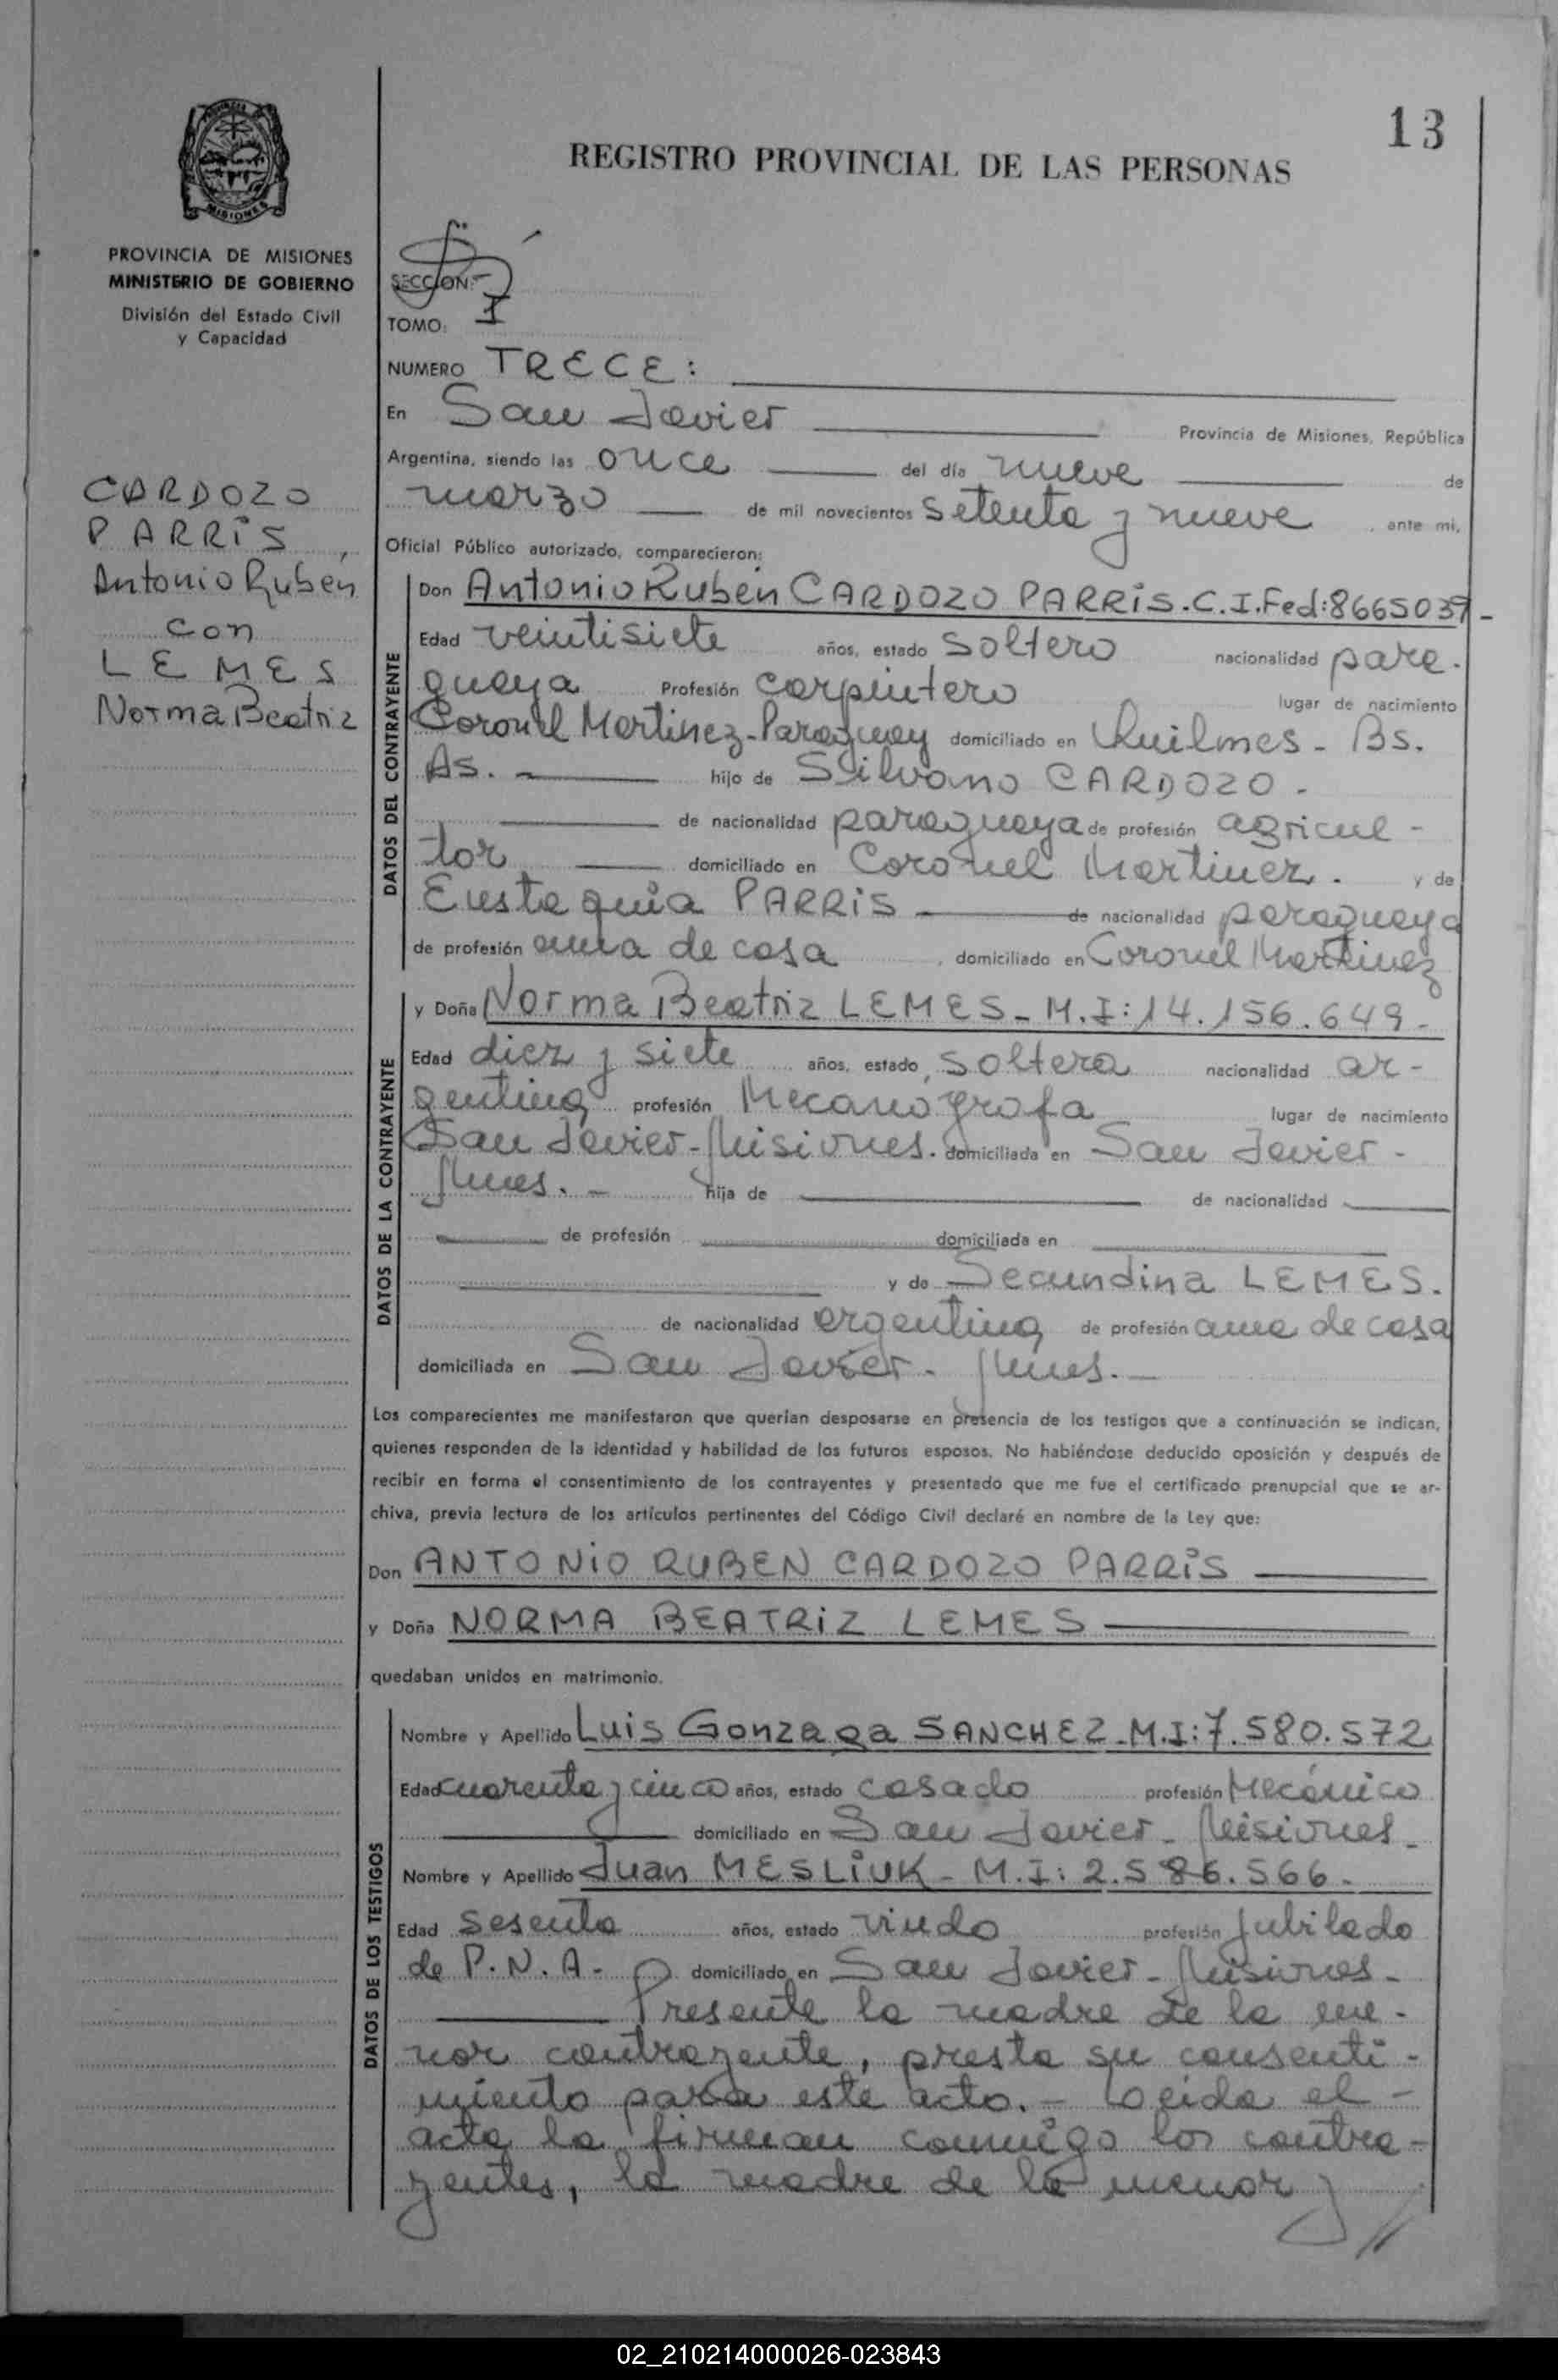 13
REGISTRO PROVINCIAL DE LAS PERSONAS
MISIONES
PROVINCIA DE MISIONES
MINISTERIO DE GOBIERNO
División del Estado Civil
y Capacidad
SECCION:
TOMO: I
NUMERO TRECE:
En San Javier Provincia de Misiones, República
Argentina, siendo las once del día nueve de
marzo de mil novecientos setenta y nueve, ante mi,
Oficial Público autorizado, comparecieron:
CARDOZO
PARRIS,
Antonio Rubén
con
LEMES
Norma Beatriz
DATOS DEL CONTRAYENTE
Don Antonio Rubén CARDOZO PARRIS.C.I.Fed:8665039-
Edad veintisiete años, estado soltero nacionalidad para-
guaya Profesión carpintero lugar de nacimiento
Coronel Martinez-Paraguay domiciliado en Quilmes - Bs.
As. - hijo de Silvano CARDOZO -
de nacionalidad paraguaya de profesión agricul-
tor domiciliado en Coronel Martinez. y de
Eustaquia PARRIS de nacionalidad paraguaya
de profesión ama de casa, domiciliado en Coronel Martinez
DATOS DE LA CONTRAYENTE
y Doña Norma Beatriz LEMES - M.I:14.156.649-
Edad diez y siete años, estado soltera nacionalidad ar-
gentina profesión Mecanografa lugar de nacimiento
San Javier-Misiones. domiciliada en San Javier -
Mnes. - hija de de nacionalidad
de profesión domiciliada en
y de Secundina LEMES.
de nacionalidad argentina de profesión ama de casa
domiciliada en San Javier - Mnes. -
Los comparecientes me manifestaron que querían desposarse en presencia de los testigos que a continuación se indican,
quienes responden de la identidad y habilidad de los futuros esposos. No habiéndose deducido oposición y después de
recibir en forma el consentimiento de los contrayentes y presentado que me fue el certificado prenupcial que se ar-
chiva, previa lectura de los artículos pertinentes del Código Civil declaré en nombre de la Ley que:
Don ANTONIO RUBEN CARDOZO PARRIS
y Doña NORMA BEATRIZ LEMES
quedaban unidos en matrimonio.
DATOS DE LOS TESTIGOS
Nombre y Apellido Luis Gonzaga SANCHEZ-M.I:7.580.572
Edad cuarenta y cinco años, estado casado profesión Mecánico
domiciliado en San Javier - Misiones -
Nombre y Apellido Juan MESLIUK - M.I: 2.586.566.
Edad sesenta años, estado viudo profesión jubilado
de P.N.A- domiciliado en San Javier - Misiones -
Presente la madre de la me-
nor contrayente, presta su consenti-
miento para este acto. - Leida el -
acta la firman conmigo los contra-
yentes, la madre de la menor y //
02_210214000026-023843